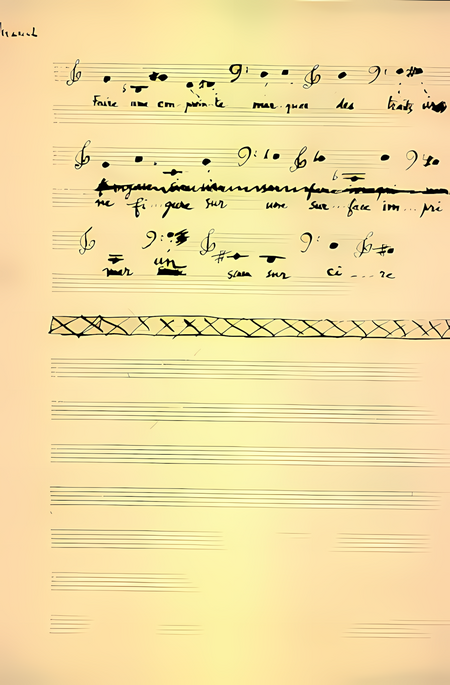 Faire une em-prein-te mar-quer des traits
ne fi...gure sur une sur...face im...pri
mer un sceau sur ci....re